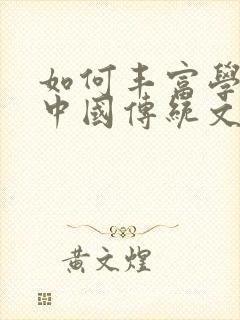 如何丰富學
中國傳統文
黃文煌